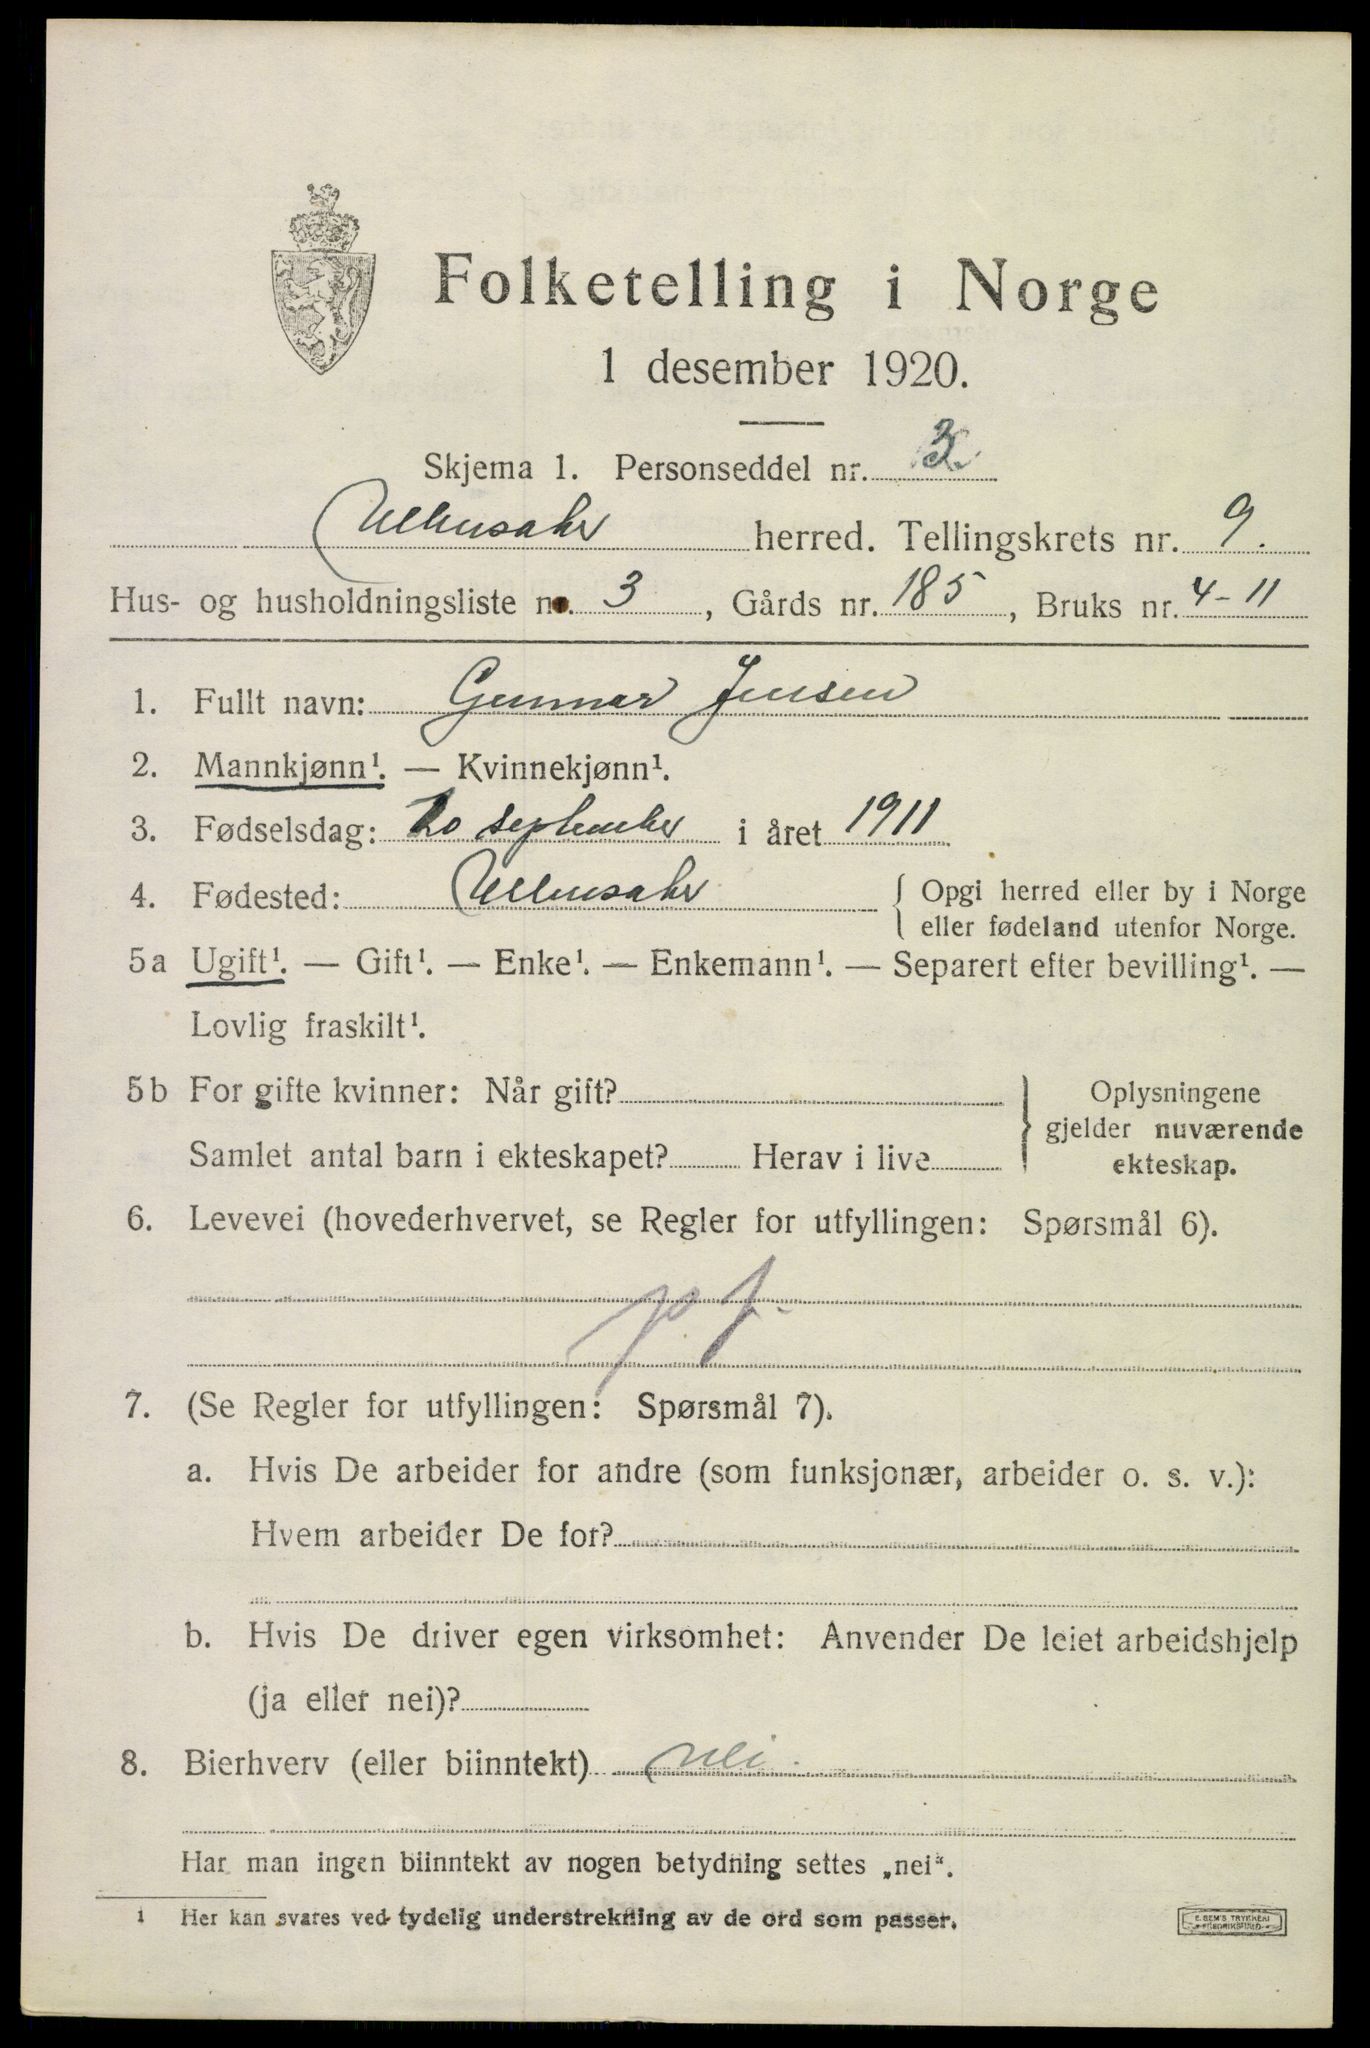 Folketelling i Norge
1 desember 1920.
Skjema 1. Personseddel nr. 3
Ullensaker herred. Tellingskrets nr. 9.
Hus- og husholdningsliste nr. 3, Gårds nr. 185, Bruks nr. 4-11
1. Fullt navn: Gunnar Jensen
2. Mannkjønn¹. — Kvinnekjønn¹.
3. Fødselsdag: 20 september i året 1911
4. Fødested: Ullensaker { Opgi herred eller by i Norge
eller fødeland utenfor Norge.
5a Ugift¹. — Gift¹. — Enke¹. — Enkemann¹. — Separert efter bevilling¹. —
Lovlig fraskilt¹.
5b For gifte kvinner: Når gift? } Oplysningene
gjelder nuværende
Samlet antal barn i ekteskapet? Herav i live
ekteskap.
6. Levevei (hovederhvervet, se Regler for utfyllingen: Spørsmål 6).
7. (Se Regler for utfyllingen: Spørsmål 7).
a. Hvis De arbeider for andre (som funksjonær, arbeider o. s. v.):
Hvem arbeider De for?
b. Hvis De driver egen virksomhet: Anvender De leiet arbeidshjelp
(ja eller nei)?
8. Bierhverv (eller biinntekt) nei.
Har man ingen biinntekt av nogen betydning settes „nei“.
¹ Her kan svares ved tydelig understrekning av de ord som passer.
E. SEM'S TRYKKERI
FREDRIKSHALD